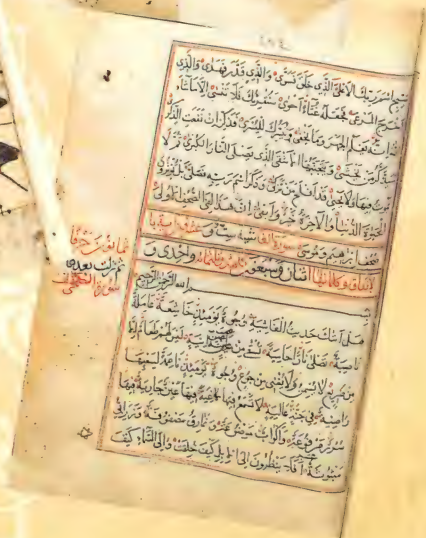 سبح اسم ربك الاعلى الذى خلق فسوى والذى قدر فهدى والذى
اخرج المرعى فجعله غثاء احوى سنقرئك فلا تنسى الا ما شاء
الله انه يعلم الجهر وما يخفى ونيسرك لليسرى فذكر ان نفعت الذكرى
سيذكر من يخشى ويتجنبها الاشقى الذى يصلى النار الكبرى ثم لا
يموت فيها ولا يحيى قد افلح من تزكى وذكر اسم ربه فصلى بل تؤثرون
الحيوة الدنيا والآخرة خير وابقى ان هذا لفى الصحف الاولى
صحف ابرهيم وموسى سورة الغاشية ست وعشرون اية
وكلماتها اثنان وسبعون وثلثمائة واحدى و
ثم نزلت بعدها
سورة الكهف
بسم الله الرحمن الرحيم
هل اتيك حديث الغاشية وجوه يومئذ خاشعة عاملة
ناصبة تصلى نارا حامية تسقى من عين آنية ليس لهم طعام الا
من ضريع لا يسمن ولا يغنى من جوع وجوه يومئذ ناعمة لسعيها
راضية فى جنة عالية لا تسمع فيها لاغية فيها عين جارية فيها
سرر مرفوعة واكواب موضوعة ونمارق مصفوفة وزرابى
مبثوثة افلا ينظرون الى الابل كيف خلقت والى السماء كيف